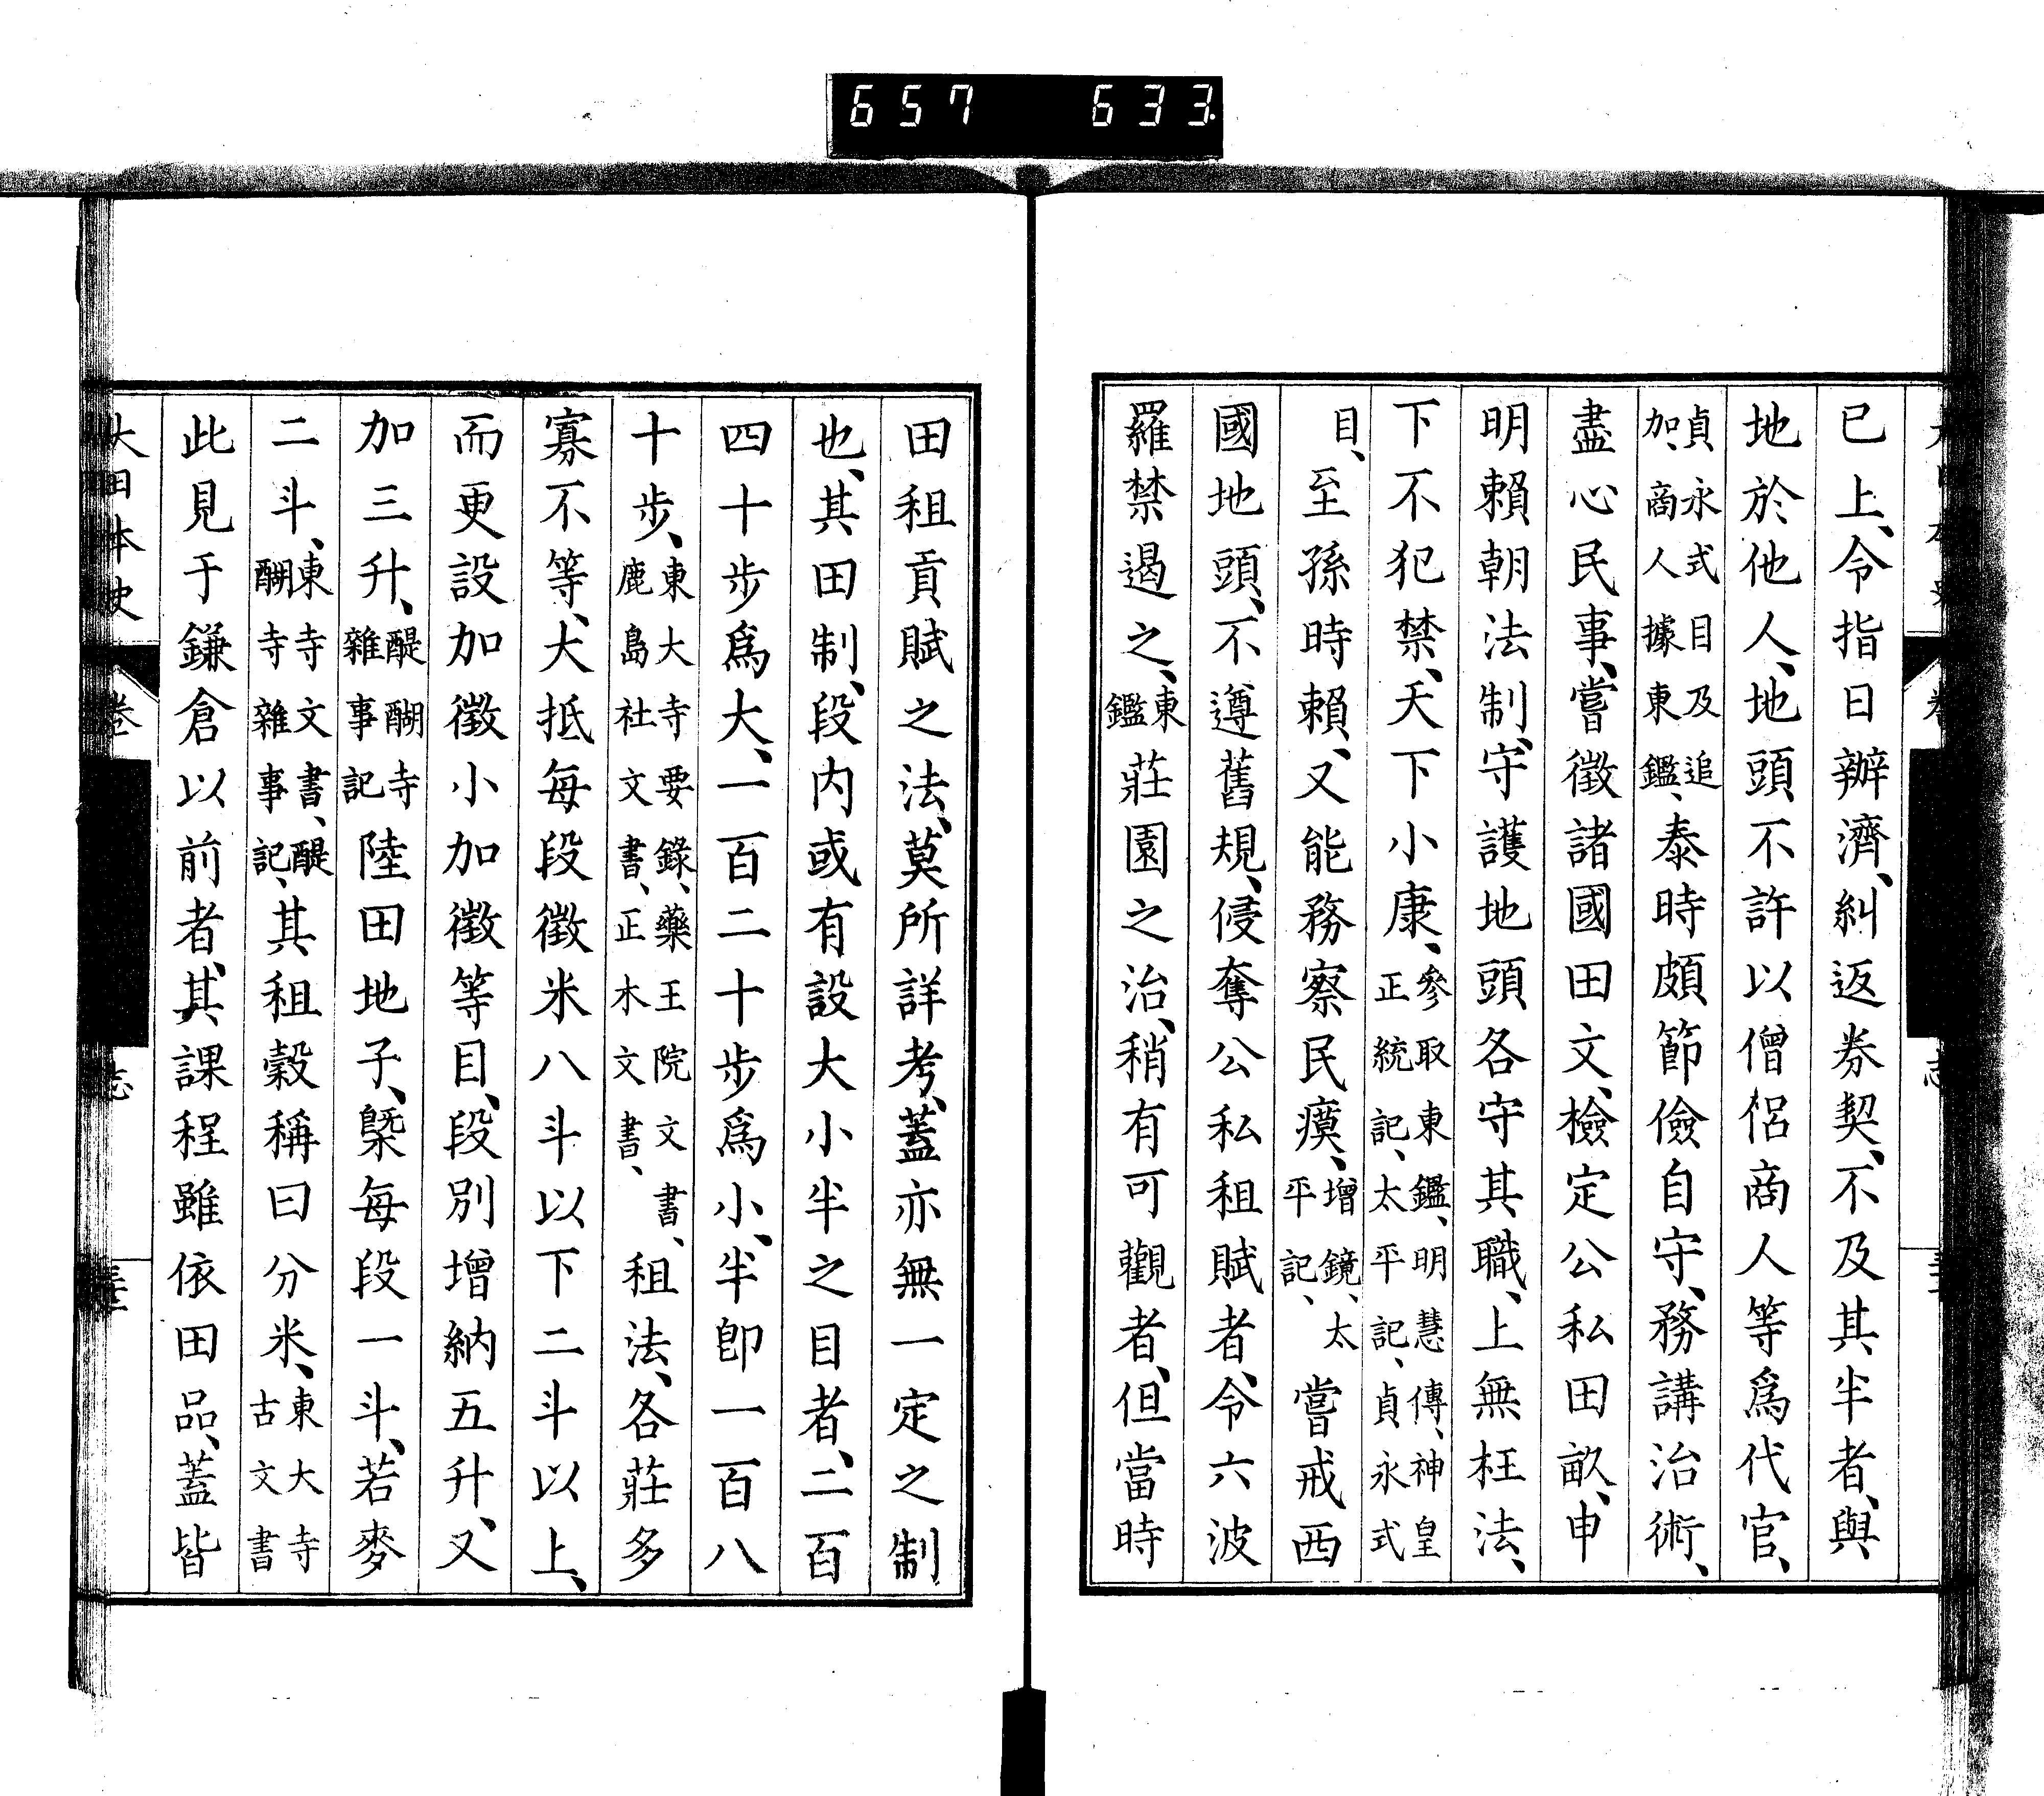 657 633
已上、令指日辦濟、糾返券契、不及其半者、與
地於他人、地頭不許以僧侶商人等爲代官、
貞永式目及追
加、商人據東鑑、泰時頗節儉自守、務講治術、
盡心民事、嘗徵諸國田文、檢定公私田畝、申
明賴朝法制、守護地頭各守其職、上無枉法、
下不犯禁、天下小康、參取東鑑、明慧傳、神皇
正統記、太平記、貞永式
目、至孫時賴、又能務察民瘼、增鏡、太
平記、嘗戒西
國地頭、不遵舊規、侵奪公私租賦者、令六波
羅禁遏之、東
鑑莊園之治、稍有可觀者、但當時
田租貢賦之法、莫所詳考、蓋亦無一定之制
也、其田制、段內或有設大小半之目者、二百
四十步爲大、一百二十步爲小、半卽一百八
十步、東大寺要錄、藥王院文書、
鹿島社文書、正木文書、租法、各莊多
寡不等、大抵每段徵米八斗以下二斗以上、
而更設加徵小加徵等目、段別增納五升、又
加三升、醍醐寺
雜事記陸田地子、槩每段一斗、若麥
二斗、東寺文書、醍
醐寺雜事記、其租穀稱曰分米、東大寺
古文書
此見于鎌倉以前者、其課程雖依田品、蓋皆
大日本史 卷 志